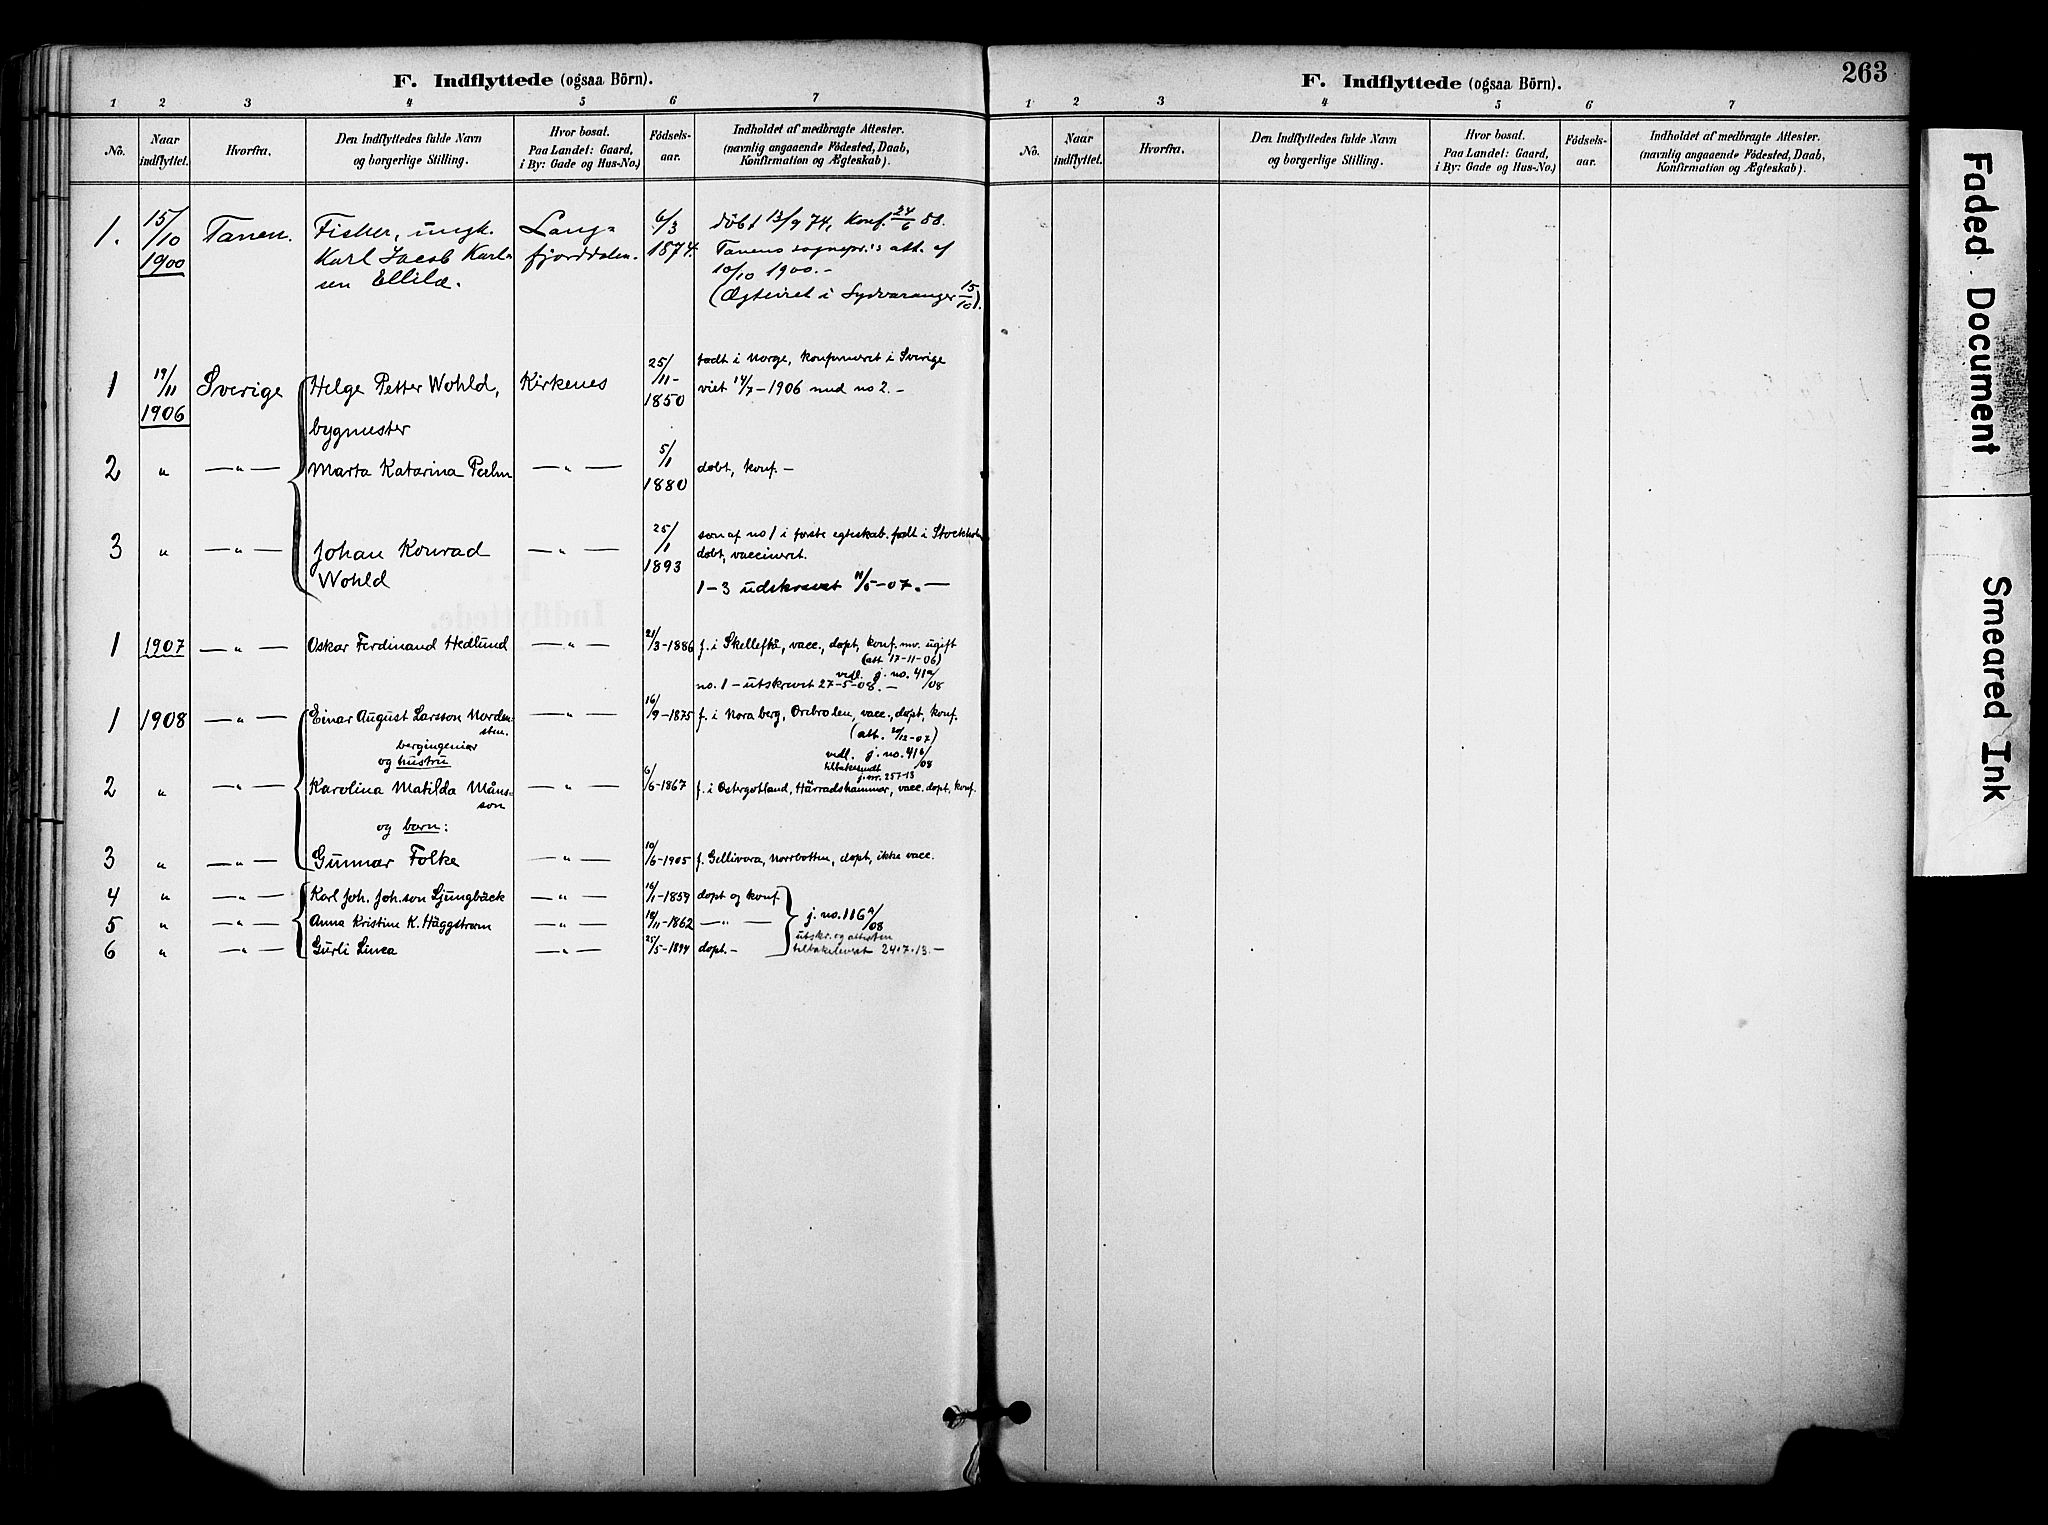 F. Indflyttede (ogsaa Börn).
1 2 3 4 5 6 7
No.
Naar indflyttet.
Hvorfra.
Den Indflyttedes fulde Navn
og borgerlige Stilling.
Hvor bosat.
Paa Landet: Gaard,
i By: Gade og Hus-No.)
Födsels-
aar.
Indholdet af medbragte Attester.
(navnlig angaaende Födested, Daab,
Konfirmation og Ægteskab).
1. 15/10 1900 Tanen. Fisker, ungk. Lang= 6/3 1874. döbt 13/9 74, Konf. 24/6 88.
Karl Jacob Karl= fjorddalen. Tanens sognepr.'s att. af
sen Ellilæ. 10/10 1900.-
(Ægteviet i Sydvaranger 15/10).
1 19/11 1906 Sverige Helge Petter Wohld, Kirkenes 25/11-1850 født i Norge, konfirmeret i Sverige
bygmester viet 14/7-1906 med no 2.-
2 " —"— Marta Katarina —"— 5/1 1880 døbt, konf.-
3 " —"— Johan Konrad —"— 25/1 1893 søn af no 1 i første egteskab. født i Stockholm
Wohld døbt, vaccineret.
1-3 udskrevet 11/5-07.—
1 1907 —"— Oskar Ferdinand Hedlund —"— 21/3-1886 f. i Skellefteå, vacc., døpt, konf. mv. ugift
(att. 17-11-06)
vedl. j. no. 41a/08
no. 1 - utskrevet 27-5-08.-
1 1908 —"— Einar August Larsson Norden- —"— 16/9-1875 f. i Nora berg, Örebro len, vacc., døpt, konf.
sten. (att. 20/12-07)
bergingeniør vedl. j. no. 41b/08
og hustru tilbakesendt
j. nr. 257-13
2 " —"— Karolina Matilda Måns- —"— 6/6-1867 f. i Östergötland, Härradshammar, vacc. døpt, konf.
son
og barn:
3 " —"— Gunnar Folke —"— 10/6-1905 f. Gellivara, Norrbotten, døpt, ikke vacc.
4 " —"— Karl Joh. Joh.son Ljungbäck —"— 16/1-1859 døpt og konf.
5 " —"— Anna Kristine K. Häggström —"— 18/11-1862 —"— j. no. 116a/08
6 " —"— Gurli Linea —"— 25/5-1894 døpt.- utskr. og attesten
tilbakelevert 24.7.13.-
F. Indflyttede (ogsaa Börn).
263
1 2 3 4 5 6 7
No.
Naar indflyttet.
Hvorfra.
Den Indflyttedes fulde Navn
og borgerlige Stilling.
Hvor bosat.
Paa Landet: Gaard,
i By: Gade og Hus-No.)
Födsels-
aar.
Indholdet af medbragte Attester.
(navnlig angaaende Födested, Daab,
Konfirmation og Ægteskab).
Faded Document
Smeared Ink